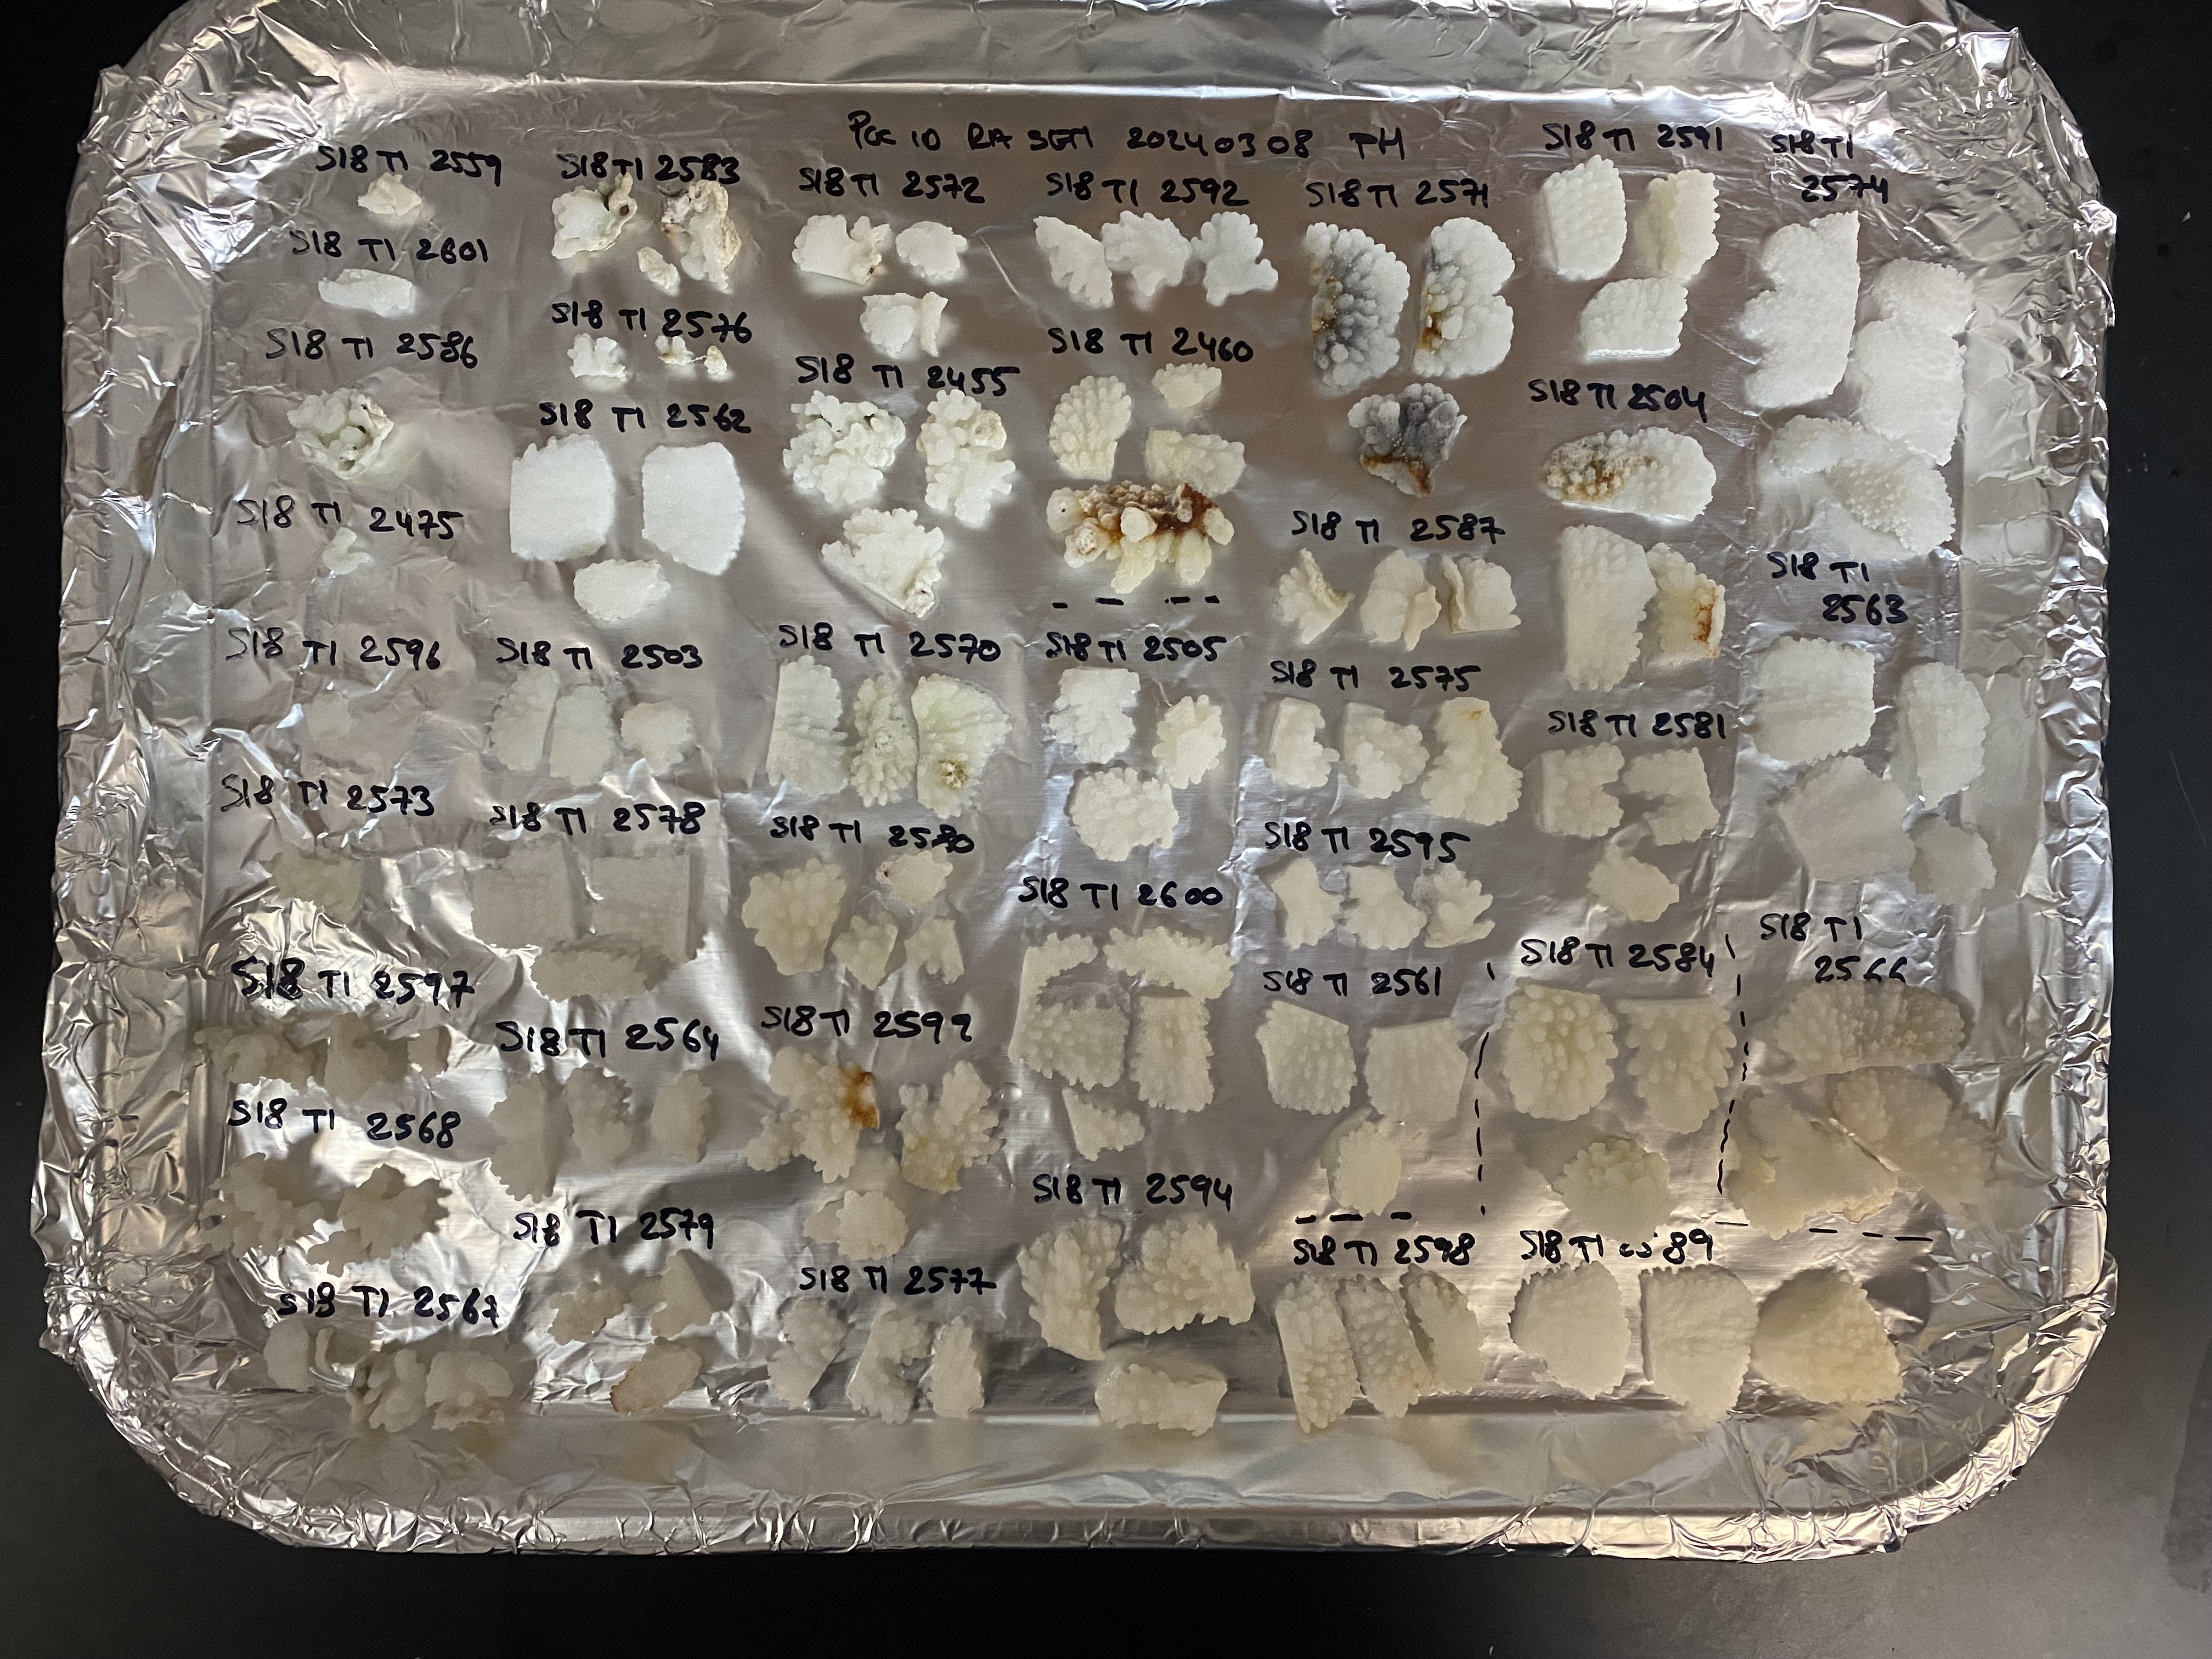 Poc 10 RA SET1 20240308 TH
S18 T1 2559
S18 T1 2601
S18 T1 2586
S18 T1 2475
S18 T1 2596
S18 T1 2573
S18 T1 2597
S18 T1 2568
S18 T1
S18 T1 2583
S18 T1 2576
S18 T1 2562
S18 T1 2503
S18 T1 2578
S18 T1 2564
S18 T1 2579
S18 T1 2572
S18 T1 2455
S18 T1 2570
S18 T1
S18 T1 2599
S18 T1 2577
S18 T1 2592
S18 T1 2460
S18 T1 2505
S18 T1 2600
S18 T1 2594
S18 T1 2571
S18 T1 2587
S18 T1 2575
S18 T1 2595
S18 T1 2561
S18 T1 2598
S18 T1 2591
S18 T1 2504
S18 T1 2581
S18 T1 2584
S18 T1
S18 T1
2574
S18 T1
2563
S18 T1
2566